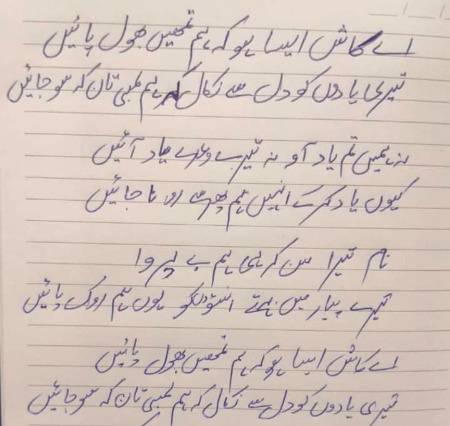 اے کاش ایسا ہو کہ ہم تمھیں بھول پائیں
تیری یادوں کو دل سے نکال کر ہم لمبی تان کہ سو جائیں
نہ ہمیں تم یاد آو نہ تیرے وعدے یاد آئیں
کیوں یاد کرکے انہیں ہم پھر سے
نام تیرا سن کر بھی ہم بے پروا
تیرے پیار میں بہتے انسوں کو یوں ہم روک پائیں
اے کاش ایسا ہو کہ ہم تمھیں بھول پائیں
تیری یادوں کو دل سے نکال کہ ہم لمبی تان کہ سو جائیں